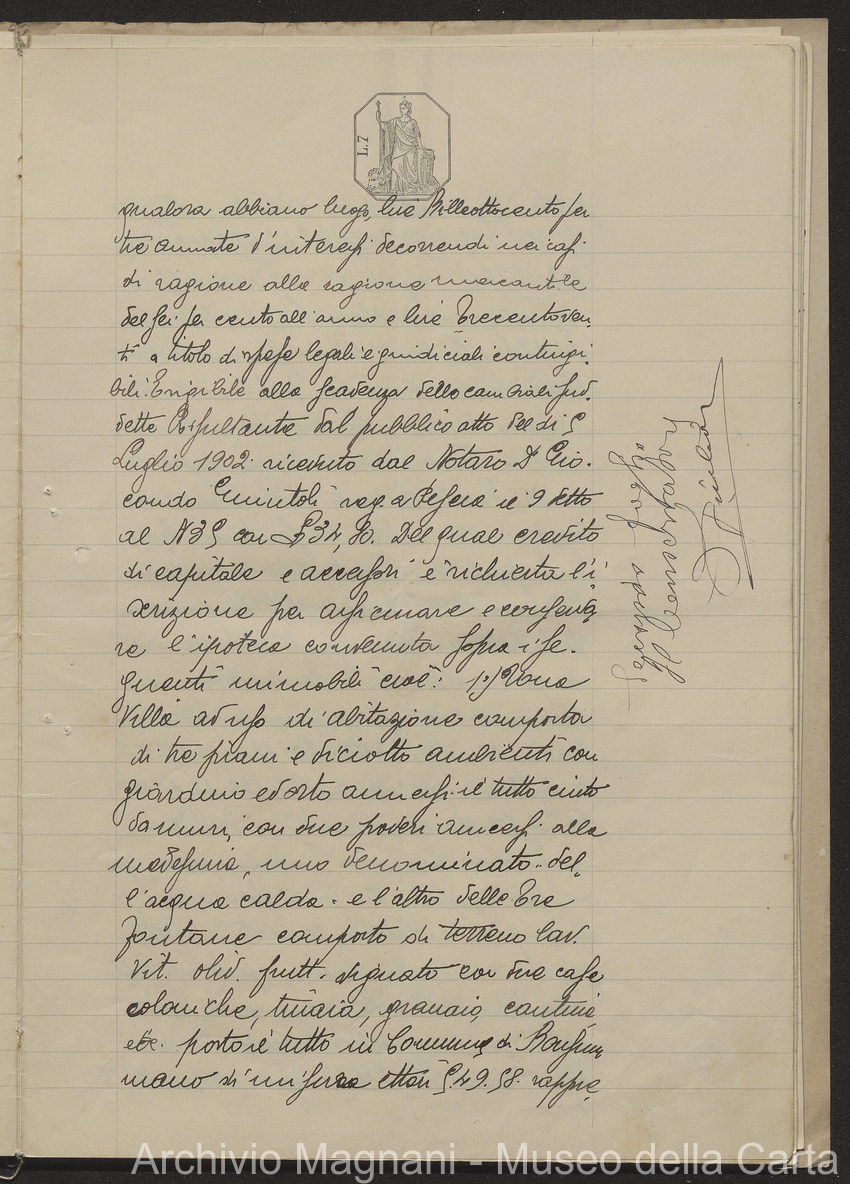 L.7
qualora abbiano luogo, lire Milleottocento per
tre annate d'interessi decorrendi nei casi
di ragione alla ragione mercantile
del sei per cento all'anno e lire Trecentoven-
ti a titolo di spese legali e giudiciali contingi-
bili. Esigibile alla scadenza delle cambiali sud-
dette Risultante dal pubblico atto del dì 5
Luglio 1902. ricevuto dal Notaro Dr Gio-
condo reg. a Pescia il 9 detto
al N 35 con £ 34,80. Del qual credito
di capitale e accessori è richiesta l'i-
scrizione per assicurare e conserva-
re l'ipoteca convenuta sopra i se-
guenti immobili cioè: 1°) Una
Villa ad uso di abitazione composta
di tre piani e diciotto ambienti con
giardino ed orto annessi il tutto cinto
da muri, con due poderi annessi alla
medesima, uno denominato "del-
l'acqua calda" e l'altro delle Tre
Fontane composto di terreno lav.
vit. oliv. frutt. con due case
coloniche, tinaia, granaio, cantina
etc. posto il tutto in Comune di Monsum-
mano di misura ettari 5.49.58. rappre-